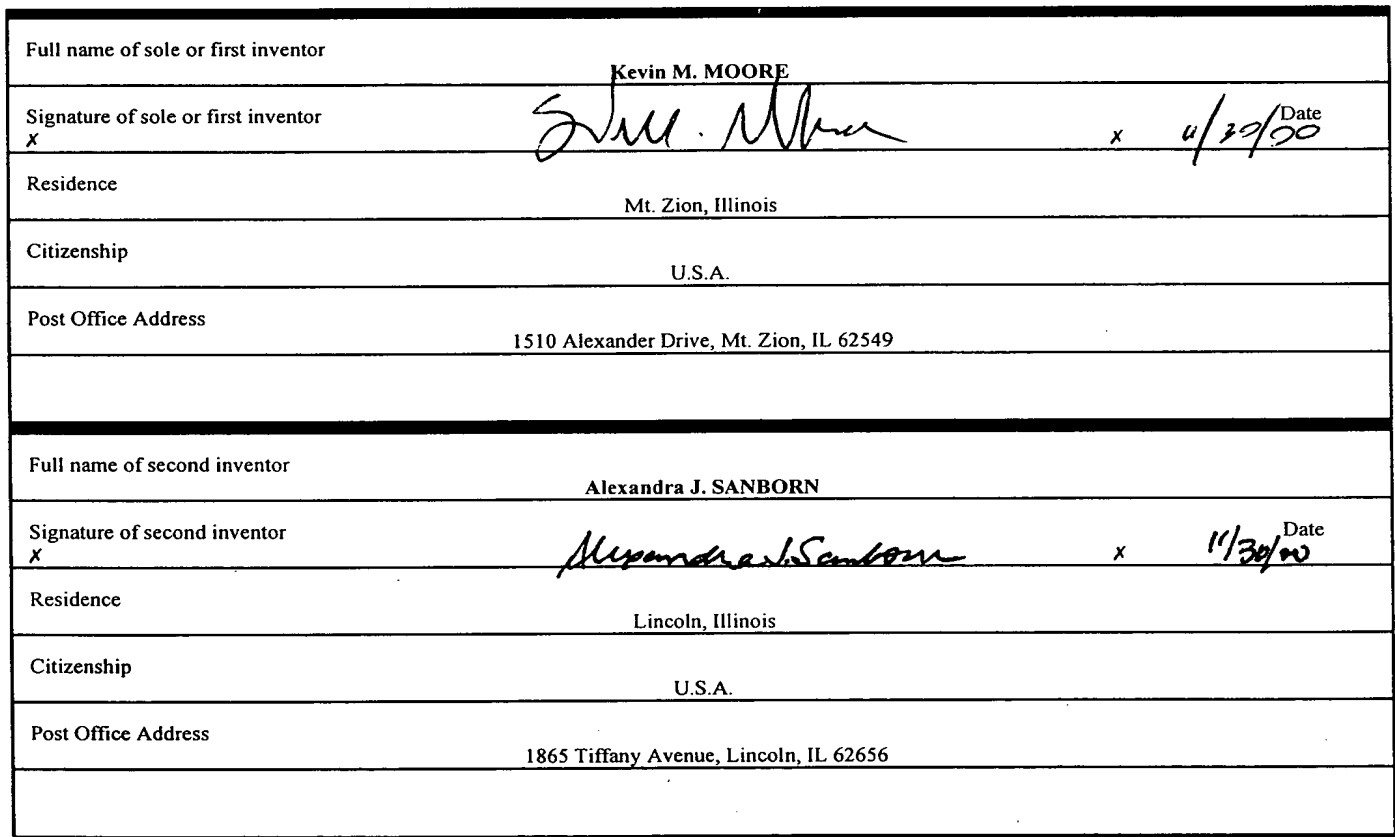 Full name of sole or first inventor
Kevin M. MOORE
Signature of sole or first inventor
x x 11/30/00 Date
Residence
Mt. Zion, Illinois
Citizenship
U.S.A.
Post Office Address
1510 Alexander Drive, Mt. Zion, IL 62549
Full name of second inventor
Alexandra J. SANBORN
Signature of second inventor
x Alexandra J. Sanborn x 11/30/00 Date
Residence
Lincoln, Illinois
Citizenship
U.S.A.
Post Office Address
1865 Tiffany Avenue, Lincoln, IL 62656